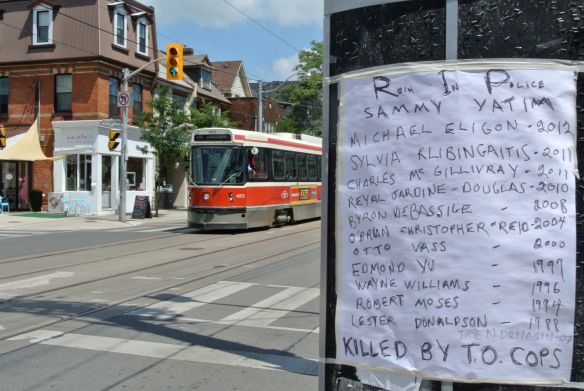 REIN IN POLICE
SAMMY YATIM
MICHAEL ELIGON - 2012
SYLVIA KLIBINGAITIS - 2011
CHARLES MCGILLIVRAY - 2011
REYAL JARDINE-DOUGLAS - 2010
BYRON DEBASSIGE - 2008
O'BRIAN CHRISTOPHER-REID - 2004
OTTO VASS - 2000
EDMOND YU - 1997
WAYNE WILLIAMS - 1996
ROBERT MOSES - 1994
LESTER DONALDSON - 1988
KILLED BY T.O. COPS